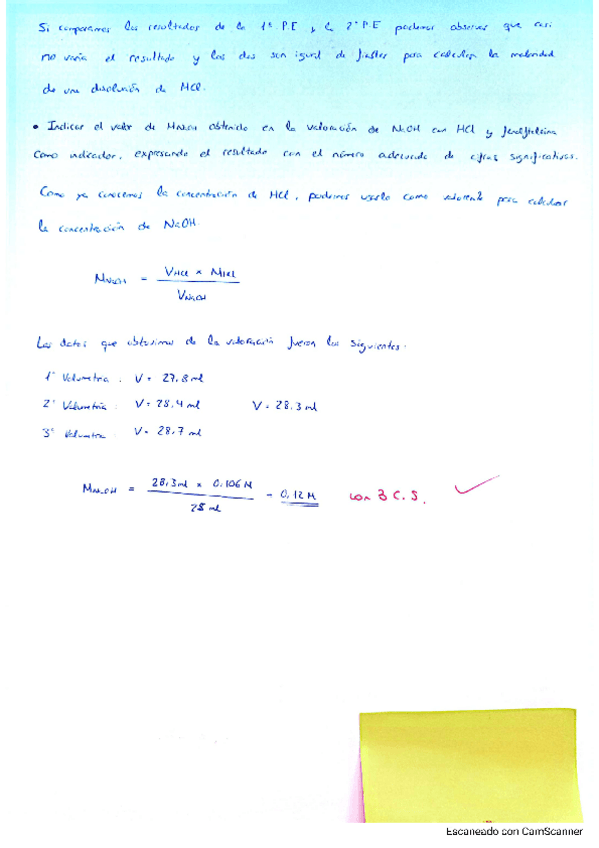 Si comparamos los resultados de la 1ª P.E y la 2ª P.E podemos observar que casi
no varía el resultado y los dos son igual de fiables para calcular la molaridad
de una disolución de HCl.
• Indicar el valor de MNaOH obtenido en la valoración de NaOH con HCl y fenolftaleína
como indicador, expresando el resultado con el número adecuado de cifras significativas.
Como ya conocemos la concentración de HCl, podemos usarlo como valorante para calcular
la concentración de NaOH.
MNaOH = VHCl × MHCl / VNaOH
Los datos que obtuvimos de la valoración fueron los siguientes:
1ª Volumetria : V = 27,8 ml
2ª Volumetria : V = 28,4 ml V = 28,3 ml
3ª Volumetria : V = 28,7 ml
MNaOH = 28,3 ml × 0,106 M / 25 ml = 0,12 M con 3 C.S. ✓
Escaneado con CamScanner